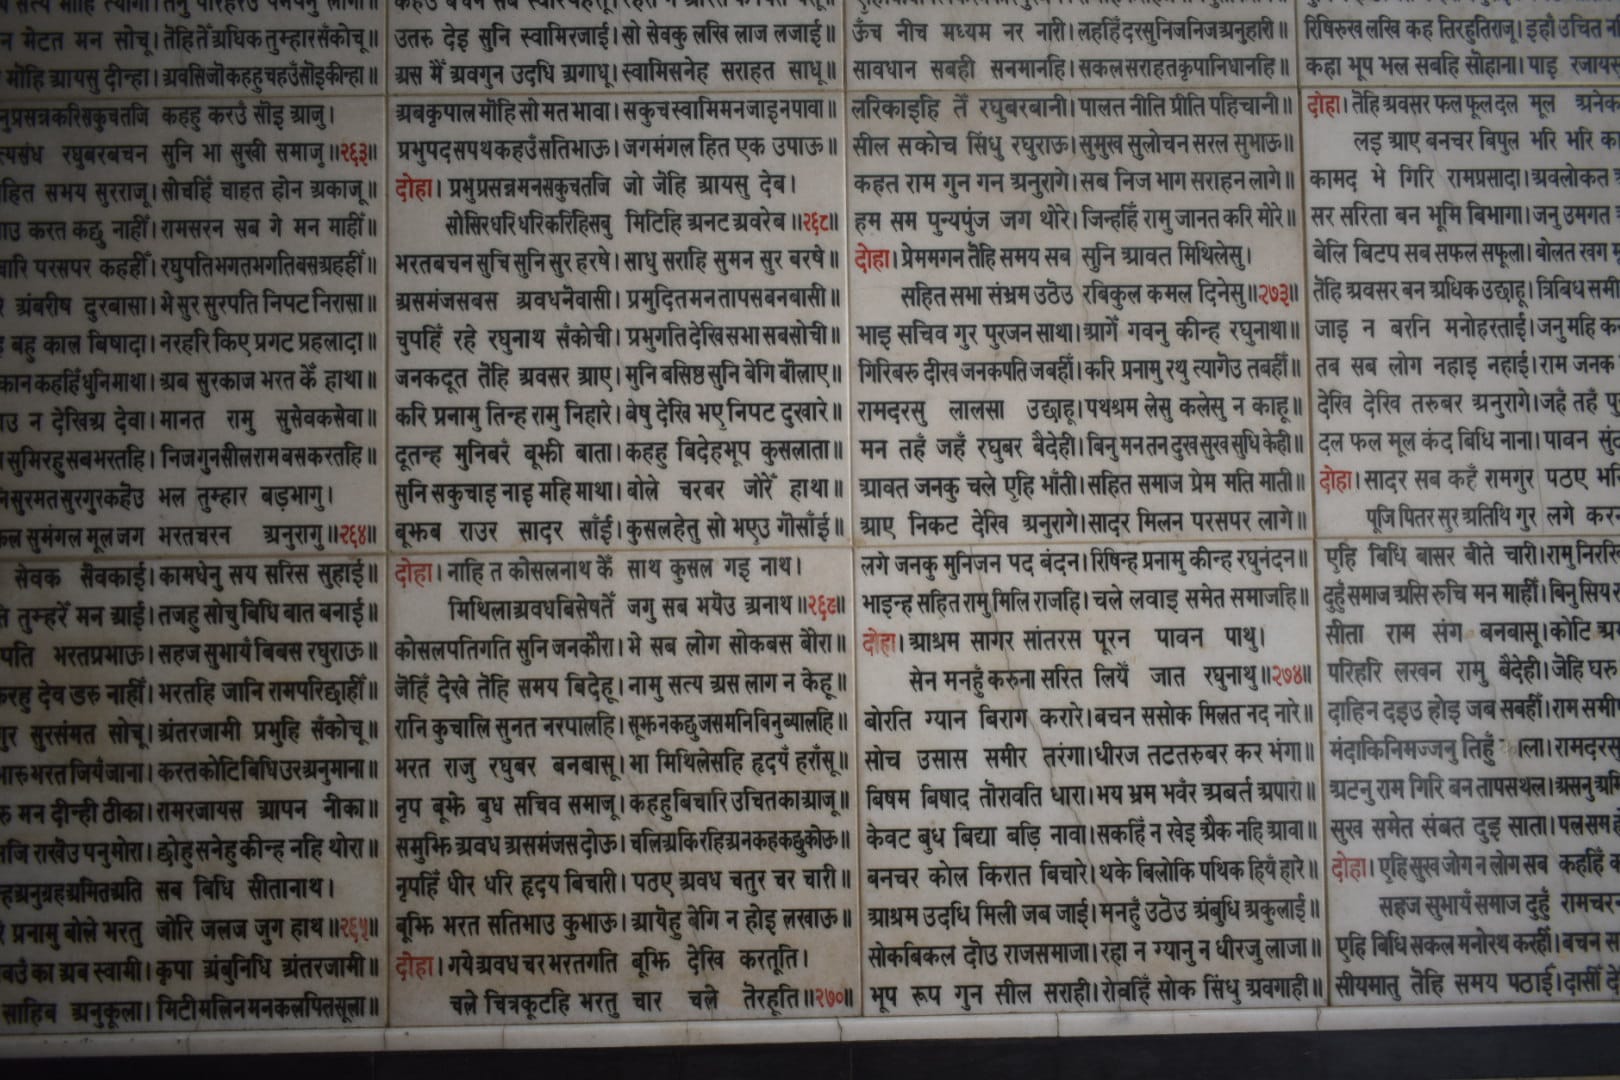 न मेटत मन सोचू। तेहि तें अधिक तुम्हार सँकोचू॥
मोहि आयसु दीन्हा। अवसि जो कहहु चहउँ सोइ कीन्हा॥
प्रसन्न करि सकुच तजि कहहु करउँ सोइ आजु।
रघुबर बचन सुनि भा सुखी समाजु॥२६३॥
हित सभय सुरराजू। सोचहिं चाहत होन अकाजू॥
करत कछु नाहीं। रामसरन सब गे मन माहीं॥
परसपर कहहीं। रघुपति भगत भगति बस अहहीं॥
अंबरीष दुरबासा। भे सुर सुरपति निपट निरासा॥
बहु काल बिषादा। नरहरि किए प्रगट प्रहलादा॥
कान कहहिं धुनि माथा। अब सुरकाज भरत कें हाथा॥
न देखिअ देवा। मानत रामु सुसेवक सेवा॥
सुमिरहु सब भरतहि। निज गुन सील राम बस करतहि॥
सुरमत सुरगुर कहेउ भल तुम्हार बड़ भागु।
सुमंगल मूल जग भरत चरन अनुरागु॥२६४॥
सेवक सेवकाई। कामधेनु सय सरिस सुहाई॥
तुम्हरें मन आई। तजहु सोचु बिधि बात बनाई॥
पति भरत प्रभाऊ। सहज सुभायँ बिबस रघुराऊ॥
देव डरु नाहीं। भरतहि जानि राम परिछाहीं॥
सुर संमत सोचू। अंतरजामी प्रभुहि सँकोचू॥
भरत जियँ जाना। करत कोटि बिधि उर अनुमाना॥
मन दीन्ही ठीका। राम रजायस आपन नीका॥
राखेउ पनु मोरा। छोहु सनेहु कीन्ह नहि थोरा॥
अनुग्रह अमित अति सब बिधि सीतानाथ।
प्रनामु बोले भरतु जोरि जलज जुग हाथ॥२६५॥
का अब स्वामी। कृपा अंबुनिधि अंतरजामी॥
साहिब अनुकूला। मिटी मलिन मन कलपित सूला॥
उतरु देइ सुनि स्वामि रजाई। सो सेवकु लखि लाज लजाई॥
अस मैं अवगुन उदधि अगाधू। स्वामि सनेह सराहत साधू॥
अब कृपाल मोहि सो मत भावा। सकुच स्वामि मन जाइ न पावा॥
प्रभु पद सपथ कहउँ सति भाऊ। जग मंगल हित एक उपाऊ॥
दोहा। प्रभु प्रसन्न मन सकुच तजि जो जेहि आयसु देब।
सो सिर धरि धरि करिहि सबु मिटिहि अनट अवरेब॥२६८॥
भरत बचन सुचि सुनि सुर हरषे। साधु सराहि सुमन सुर बरषे॥
असमंजस बस अवध नेवासी। प्रमुदित मन तापस बनबासी॥
चुपहिं रहे रघुनाथ सँकोची। प्रभु गति देखि सभा सब सोची॥
जनक दूत तेहि अवसर आए। मुनि बसिष्ठ सुनि बेगि बोलाए॥
करि प्रनामु तिन्ह रामु निहारे। बेषु देखि भए निपट दुखारे॥
दूतन्ह मुनिबरँ बूझी बाता। कहहु बिदेह भूप कुसलाता॥
सुनि सकुचाइ नाइ महि माथा। बोले चरबर जोरें हाथा॥
बूझब राउर सादर साँई। कुसल हेतु सो भएउ गोसाँई॥
दोहा। नाहि त कोसलनाथ कें साथ कुसल गइ नाथ।
मिथिला अवध बिसेष तें जगु सब भयेउ अनाथ॥२६९॥
कोसलपति गति सुनि जनकौरा। भे सब लोग सोकबस बौरा॥
जेहिं देखे तेहि समय बिदेहू। नामु सत्य अस लाग न केहू॥
रानि कुचालि सुनत नरपालहि। सूझ न कछु जस मनि बिनु ब्यालहि॥
भरत राजु रघुबर बनबासू। भा मिथिलेसहि हृदयँ हराँसू॥
नृप बूझे बुध सचिव समाजू। कहहु बिचारि उचित का आजू॥
समुझि अवध असमंजस दोऊ। चलिअ कि रहिअ न कह कछु कोऊ॥
नृपहिं धीर धरि हृदय बिचारी। पठए अवध चतुर चर चारी॥
बूझि भरत सतिभाउ कुभाऊ। आयेहु बेगि न होइ लखाऊ॥
दोहा। गये अवध चर भरत गति बूझि देखि करतूति।
चले चित्रकूटहि भरतु चार चले तेरहूति॥२७०॥
ऊँच नीच मध्यम नर नारी। लहहिं दरसु निज निज अनुहारी॥
सावधान सबही सनमानहि। सकल सराहत कृपानिधानहि॥
लरिकाइहि तें रघुबर बानी। पालत नीति प्रीति पहिचानी॥
सील सकोच सिंधु रघुराऊ। सुमुख सुलोचन सरल सुभाऊ॥
कहत राम गुन गन अनुरागे। सब निज भाग सराहन लागे॥
हम सम पुन्यपुंज जग थोरे। जिन्हहिं रामु जानत करि मोरे॥
दोहा। प्रेममगन तेहि समय सब सुनि आवत मिथिलेसु।
सहित सभा संभ्रम उठेउ रबिकुल कमल दिनेसु॥२७३॥
भाइ सचिव गुर पुरजन साथा। आगें गवनु कीन्ह रघुनाथा॥
गिरिबरु दीख जनकपति जबहीं। करि प्रनामु रथु त्यागेउ तबहीं॥
राम दरसु लालसा उछाहू। पथ श्रम लेसु कलेसु न काहू॥
मन तहँ जहँ रघुबर बैदेही। बिनु मन तन दुख सुख सुधि केही॥
आवत जनकु चले एहि भाँती। सहित समाज प्रेम मति माती॥
आए निकट देखि अनुरागे। सादर मिलन परसपर लागे॥
लगे जनकु मुनिजन पद बंदन। रिषिन्ह प्रनामु कीन्ह रघुनंदन॥
भाइन्ह सहित रामु मिलि राजहि। चले लवाइ समेत समाजहि॥
दोहा। आश्रम सागर सांतरस पूरन पावन पाथु।
सेन मनहुँ करुना सरित लियें जात रघुनाथु॥२७४॥
बोरति ग्यान बिराग करारे। बचन ससोक मिलत नद नारे॥
सोच उसास समीर तरंगा। धीरज तट तरुबर कर भंगा॥
बिषम बिषाद तोरावति धारा। भय भ्रम भवँर अबर्त अपारा॥
केवट बुध बिद्या बड़ि नावा। सकहिं न खेइ ऐक नहि आवा॥
बनचर कोल किरात बिचारे। थके बिलोकि पथिक हियँ हारे॥
आश्रम उदधि मिली जब जाई। मनहुँ उठेउ अंबुधि अकुलाई॥
सोक बिकल दोउ राज समाजा। रहा न ग्यानु न धीरजु लाजा॥
भूप रूप गुन सील सराही। रोवहिं सोक सिंधु अवगाही॥
रिषि रुख लखि कह तिरहुतिराजू। इहाँ उचित
कहा भूप भल सबहि सोहाना। पाइ रजायस
दोहा। तेहि अवसर फल फूल दल मूल अनेक
लइ आए बनचर बिपुल भरि भरि
कामद भे गिरि रामप्रसादा। अवलोकत
सर सरिता बन भूमि बिभागा। जनु उमगत
बेलि बिटप सब सफल सफूला। बोलत खग
तेहि अवसर बन अधिक उछाहू। त्रिबिध
जाइ न बरनि मनोहरताई। जनु महि
तब सब लोग नहाइ नहाई। राम जनक
देखि देखि तरुबर अनुरागे। जहँ तहँ
दल फल मूल कंद बिधि नाना। पावन
दोहा। सादर सब कहँ रामगुर पठए
पूजि पितर सुर अतिथि गुर लगे
एहि बिधि बासर बीते चारी। रामु
दुहुँ समाज असि रुचि मन माहीं। बिनु सिय
सीता राम संग बनबासू। कोटि
परिहरि लखन रामु बैदेही। जेहि घरु
दाहिन दइउ होइ जब सबहीं। राम
मंदाकिनि मज्जनु तिहुँ काला। राम
अटनु राम गिरि बन तापस थल। असनु
सुख समेत संबत दुइ साता। पल सम
दोहा। एहि सुख जोग न लोग सब कहहिं
सहज सुभायँ समाज दुहुँ राम चरन
एहि बिधि सकल मनोरथ करहीं। बचन
सीय मातु तेहि समय पठाई। दासीं